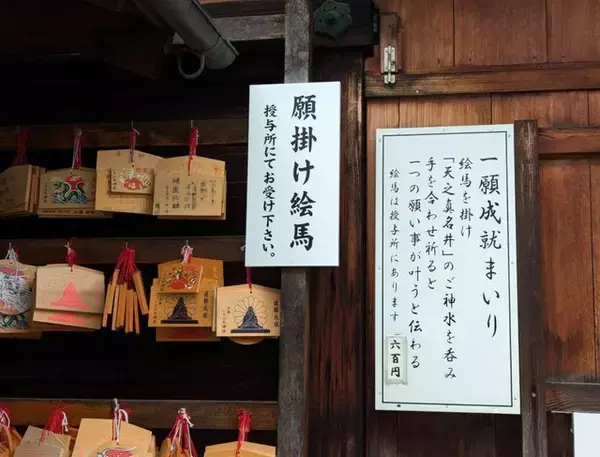 願掛け絵馬
授与所にてお受け下さい。
一願成就まいり
絵馬を掛け
「天之真名井」のご神水を呑み
手を合わせ祈ると
一つの願い事が叶うと伝わる
絵馬は授与所にあります
六百円